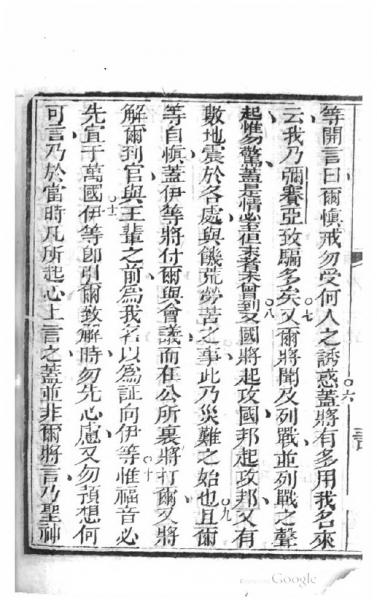 等開言曰爾慎戒勿受何人之誘惑蓋將有多用我名來
云我乃彌賽亞致騙多矣又爾將聞及列戰並列戰之聲
起惟勿驚蓋是情必至但未曾到又國將起攻國邦起攻邦又有
數地震於各處與饑荒勞苦之事此乃災難之始也且爾
等自慎蓋伊等將付爾與會議而在公所裏將打爾又將
解爾到官與王輩之前為我名以為証向伊等惟福音必
先宜于萬國伊等即引爾致解時勿先心慮又勿預想何
可言乃於當時凡所起心上言之蓋並非爾將言乃聖神
○六
○七
○八
○九
○十
○十一
Google